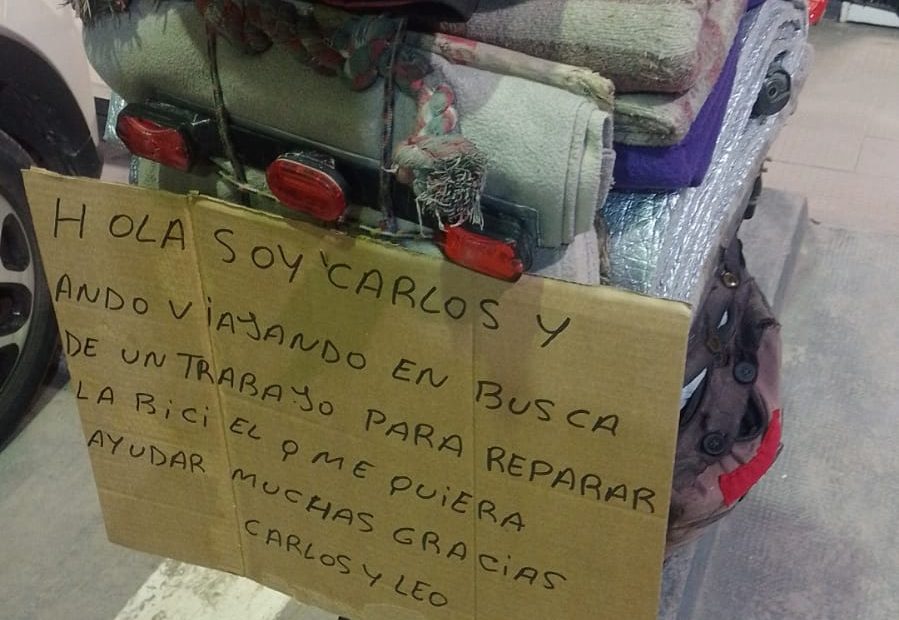 HOLA SOY CARLOS Y
ANDO VIAJANDO EN BUSCA
DE UN TRABAJO PARA REPARAR
LA BICI EL Q ME QUIERA
AYUDAR MUCHAS GRACIAS
CARLOS Y LEO